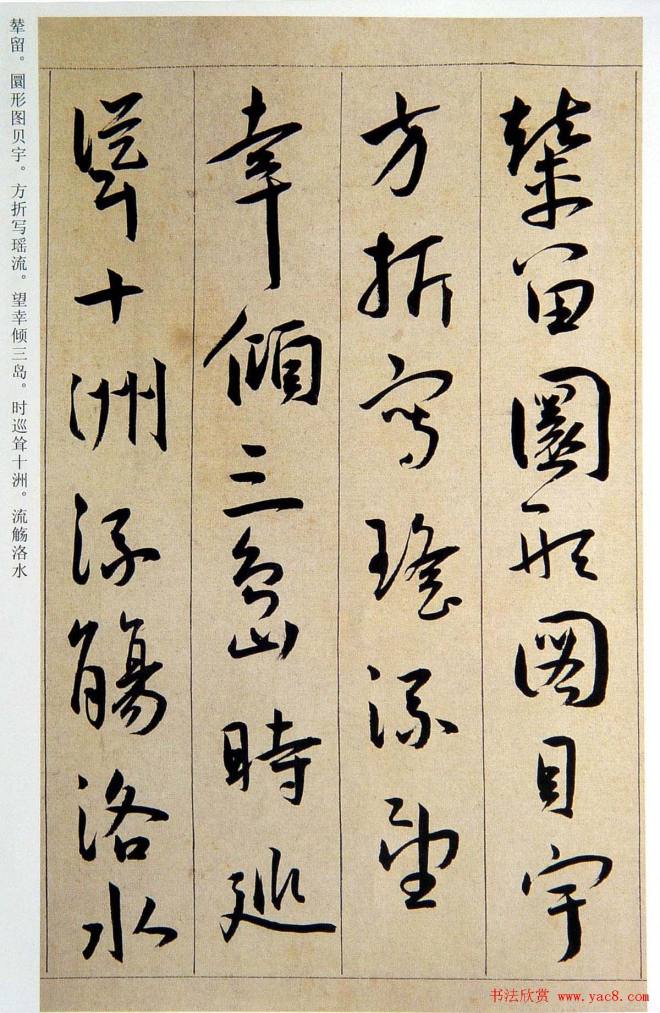 辇留圜形图贝宇
方折写瑶流望
幸倾三岛时巡
耸十洲流觞洛水
辇留。圜形图贝宇。方折写瑶流。望幸倾三岛。时巡耸十洲。流觞洛水
书法欣赏 www.yac8.com